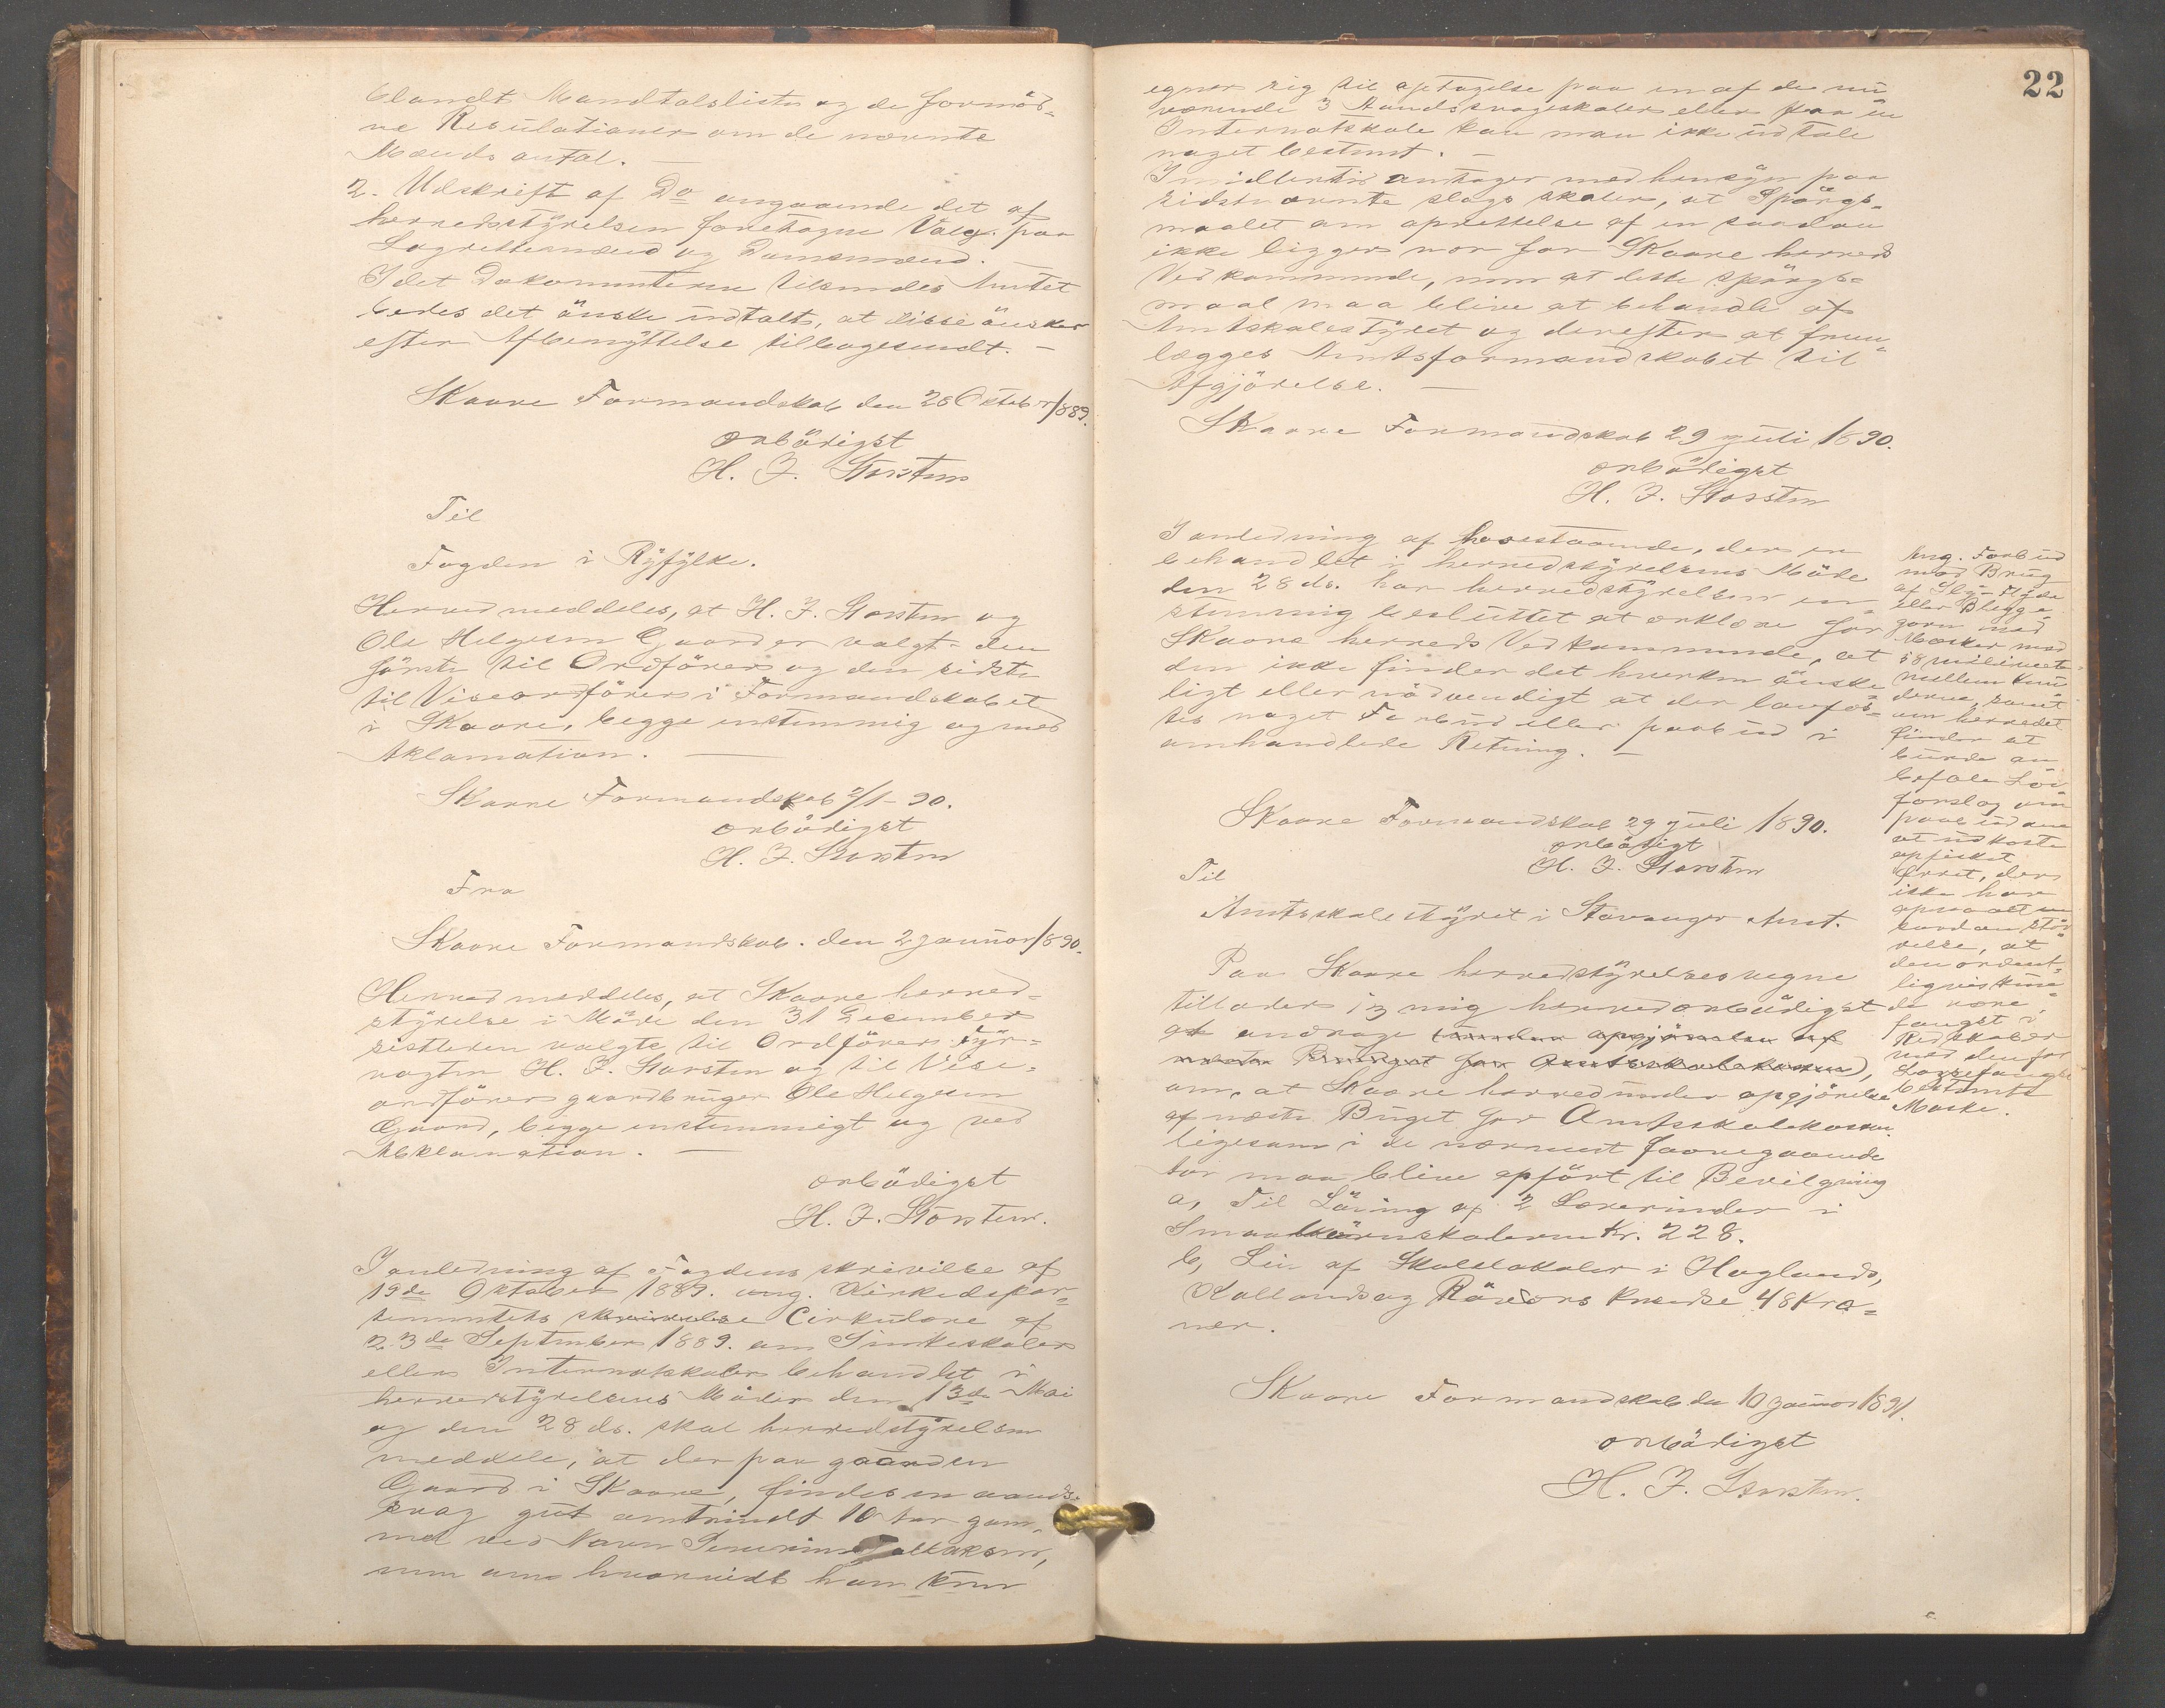 blandt Mandtalslister og de fornöd-
ne Resulationer om de nævnte
Mænds antal. —
2. Udskrift af Do angaaende det af
herredsstÿrelsen foretagne Valg paa
Lagrettesmænd og Domsmænd. —
Idet Dokumenterne tilsendes Amtet
bedes det önske udtalt, at disse önskes
efter Afbenÿttelse tilbagesendt. —
Skaare Formandskab den 28 Oktober 1889.
ærbödigst
H. J. Storsten
Til
Fogden i Rÿfÿlke.
Herved meddeles, at H. J. Storsten og
Ole Helgesen Gaard er valgt den
förste til Ordförer og den sidste
til Viseordförer i Formandskabet
i Skaare, begge enstemmig og med
Aklamation. —
Skaare Formandskab 2/1-90.
ærbödigst
H. J. Storsten
Fra
Skaare Formandskab. den 2 januar 1890.
Herved meddeles, at Skaare herred-
stÿrelse i Möde den 31 December
sistleden valgte til Ordförer Fÿr-
vogter H. J. Storsten og til Vise-
ordförer gaardbruger Ole Helgesen
Gaard, begge enstemmigt og ved
Akklamation. —
ærbödigst
H. J. Storsten.
I anledning af Fogdens skrivelse af
19de Oktober 1889. ang. Kirkedepar-
tementets skrivelse Cirkulære af
23de September 1889. om Sinkeskoler
eller Internatskoler behandlet i
herredstÿrelsens Möder den 13de Mai
og den 28 ds. skal herredstÿrelsen
meddele, at der paa gaarden
Gaard i Skaare, findes en aands-
svag gut omtrindt 10 aar gam-
mel ved Navn
men om hvorvidt han kun
22
egner sig til optagelse paa en af de nu
værende 3 Aandssvageskoler eller paa en
Internatskole kan man ikke udtale
noget bestemt. —
Imidlertid antager med hensÿn paa
sidstnævnte slags skoler, at Spörgs-
maalet om oprettelse af en saadan
ikke ligger nær for Skaare herreds
Vedkommende, men at dette spörgs-
maal maa blive at behandle af
AmtskolestÿYret og derefter at frem-
lægges Amtsformandskabet til
Afgjörelse. —
Skaare Formandskab 29 juli 1890.
ærbödigst
H. J. Storsten
I anledning af hosstaaende, der er
behandlet i herredstÿrelsens Möde
den 28 ds. har herredstÿrelsen en-
stemmig besluttet at erklære for
Skaare herreds Vedkommende, at
den ikke finder det hverken önske-
ligt eller nödvendigt at der lovfæs-
tes noget Forbud eller paabud i
omhandlede Retning. —
Skaare Formandskab 29 juli 1890.
ærbödigt
H. J. Storsten
Ang. Forbud
mod Brug
af
eller
garn med
Masker med
58 milimeter
mellem Knu-
derne, samt
om herredet
finder at
burde an
befale Lov
forslag om
paabud om
at udkaste
opfisket
Örret, der
ikke har
opnaaet en
saadan stör
relse, at
den ordent-
ligvis kun-
de være
fanget i
Redskaber
med den for
Laxefangst
bestemte
Maske.
Til
Amtsskolestÿret i Stavanger Amt.
Paa Skaare herredstÿrelses vegne
tillader jeg mig herved ærbödigst
at andrage (under opgjörelse af
næste Budget for Amtsskolekassen),
om, at Skaare herred under opgjörelse
af næste Buget for Amtsskolekassen
ligesom i de nærmest foregaaende
aar maa blive opfört til Bevilgning
a, Til Lönning af 2 Lærerinder i
Smaabörnskolerne Kr. 228.
b, Leie af Skolelokaler i Haglands,
Kallands og Rövers kredse 48 Kro-
ner.
Skaare Formandskab den 10 januar 1891.
ærbödigst
H. J. Storsten.